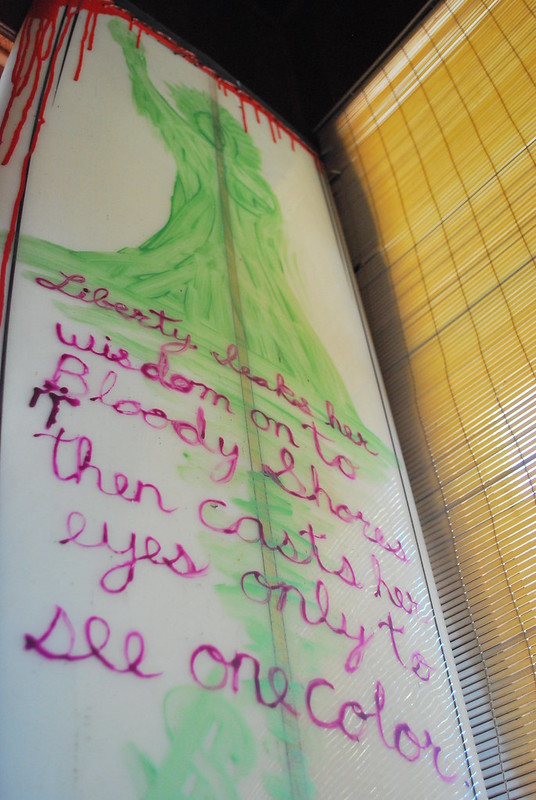 Liberty leaks her
wisdom on to
Bloody Shores
then casts her
eyes only to
see one color.